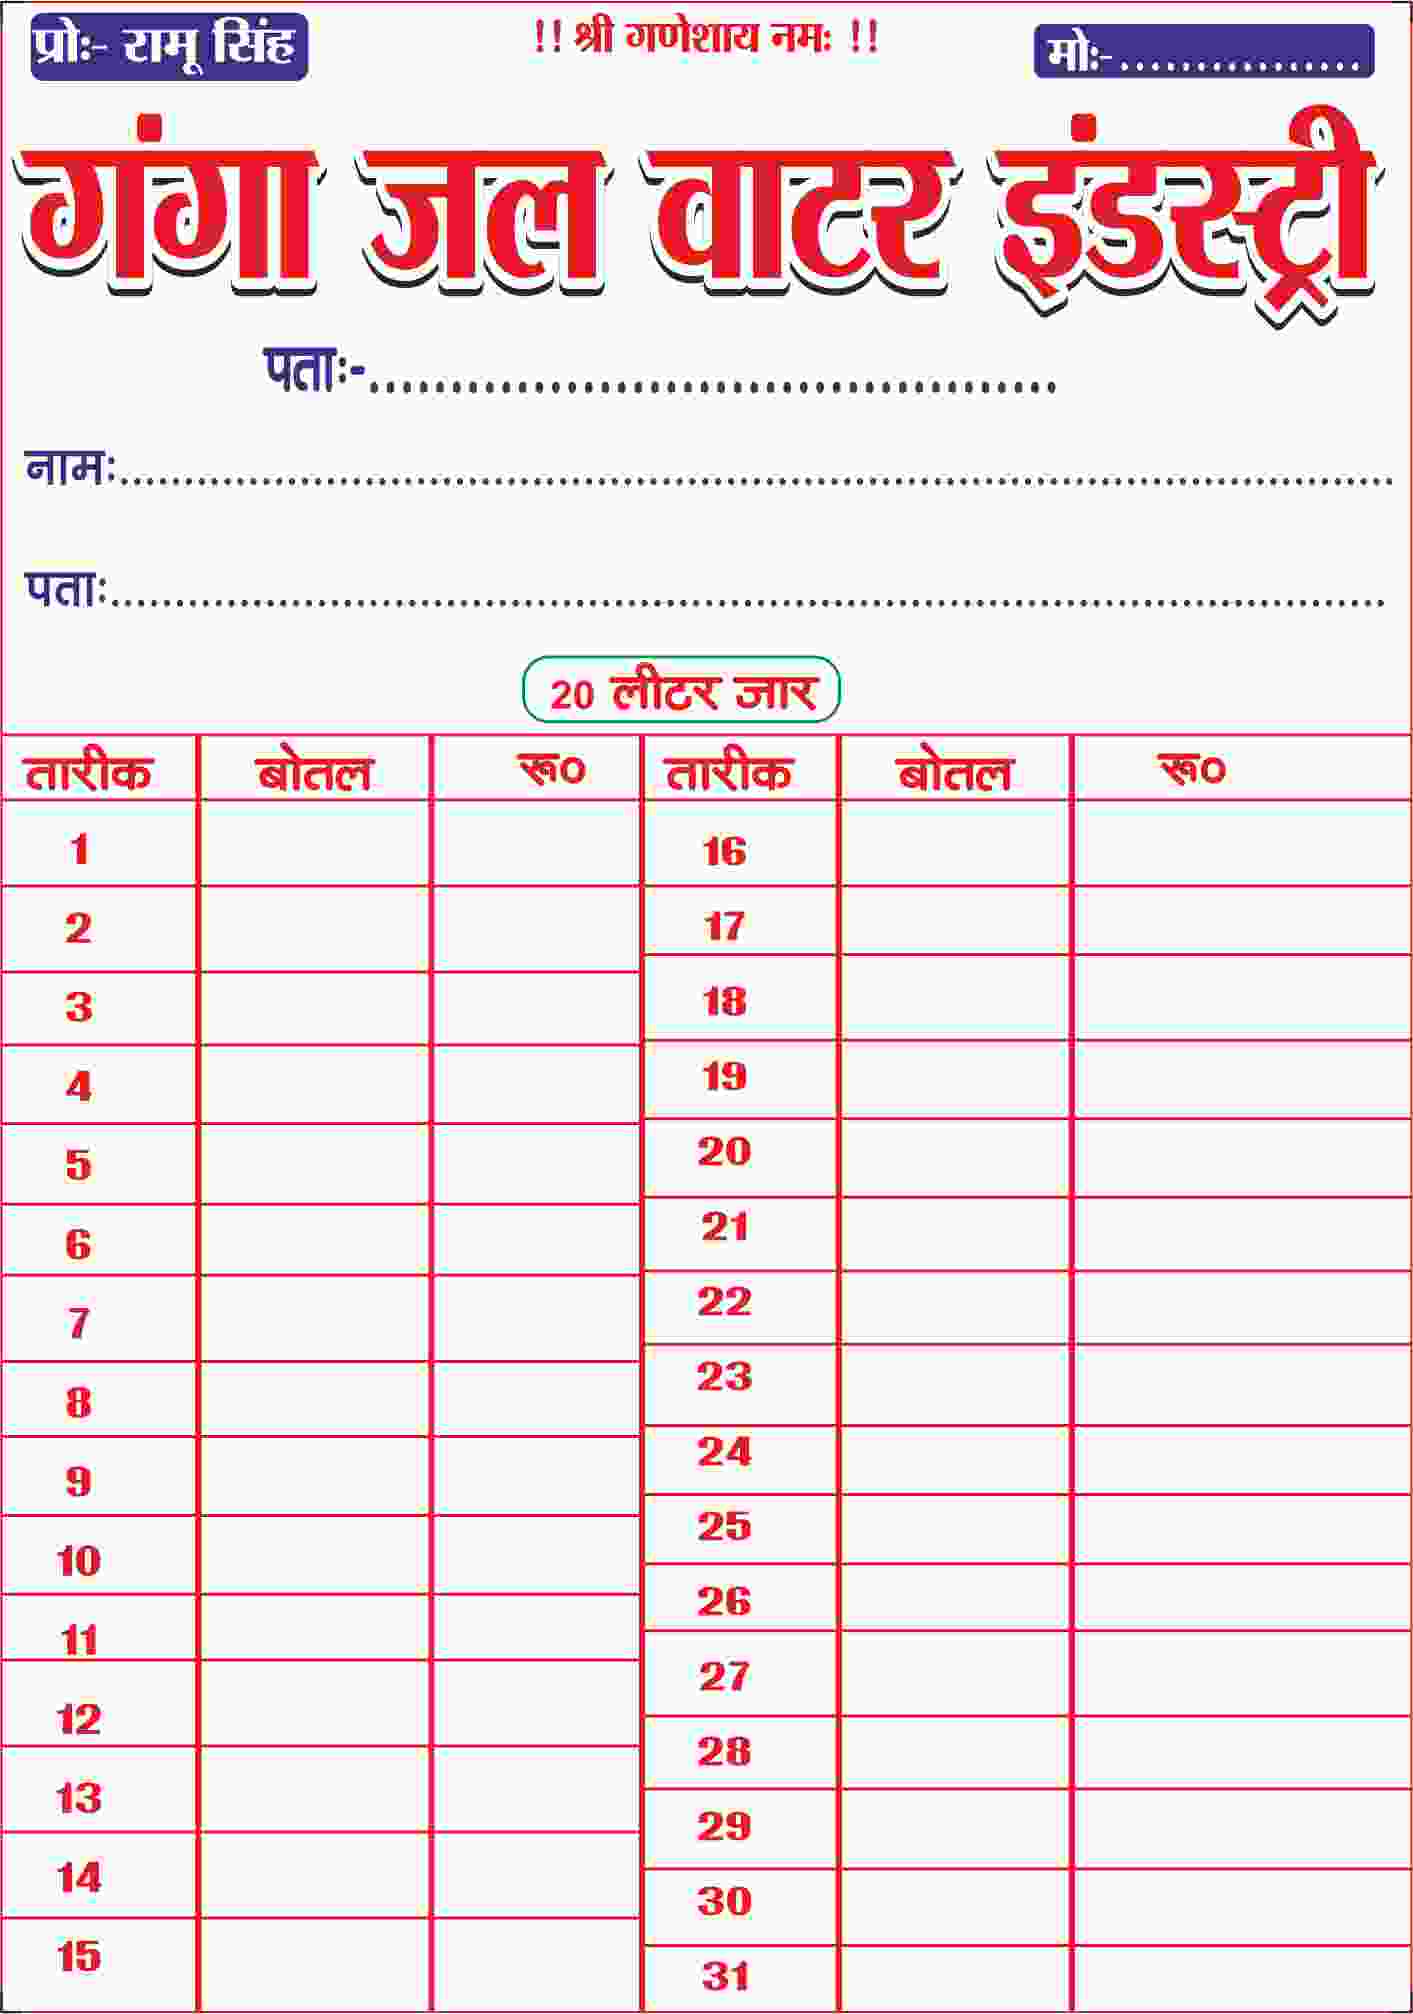 प्रोः- रामू सिंह
!! श्री गणेशाय नमः !!
मोः-................
गंगा जल वाटर इंडस्ट्री
पताः-..........................................
नामः....................................................................................................
पताः....................................................................................................
20 लीटर जार
तारीक बोतल रू० तारीक बोतल रू०
1 16
2 17
3 18
4 19
5 20
6 21
7 22
8 23
9 24
10 25
11 26
12 27
13 28
14 29
15 30
31